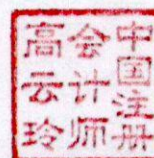 中国注册
会计师
高云玲